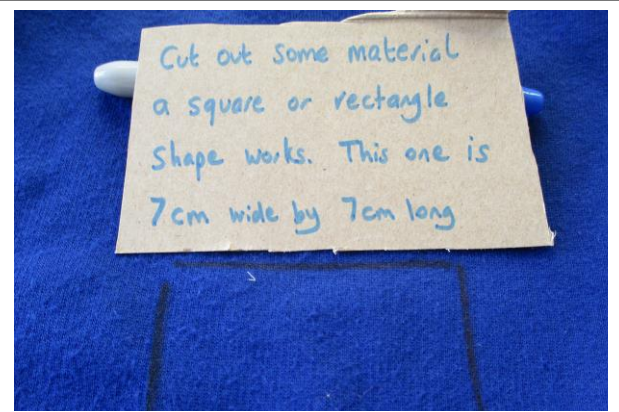 Cut out some material
a square or rectangle
shape works. This one is
7cm wide by 7cm long